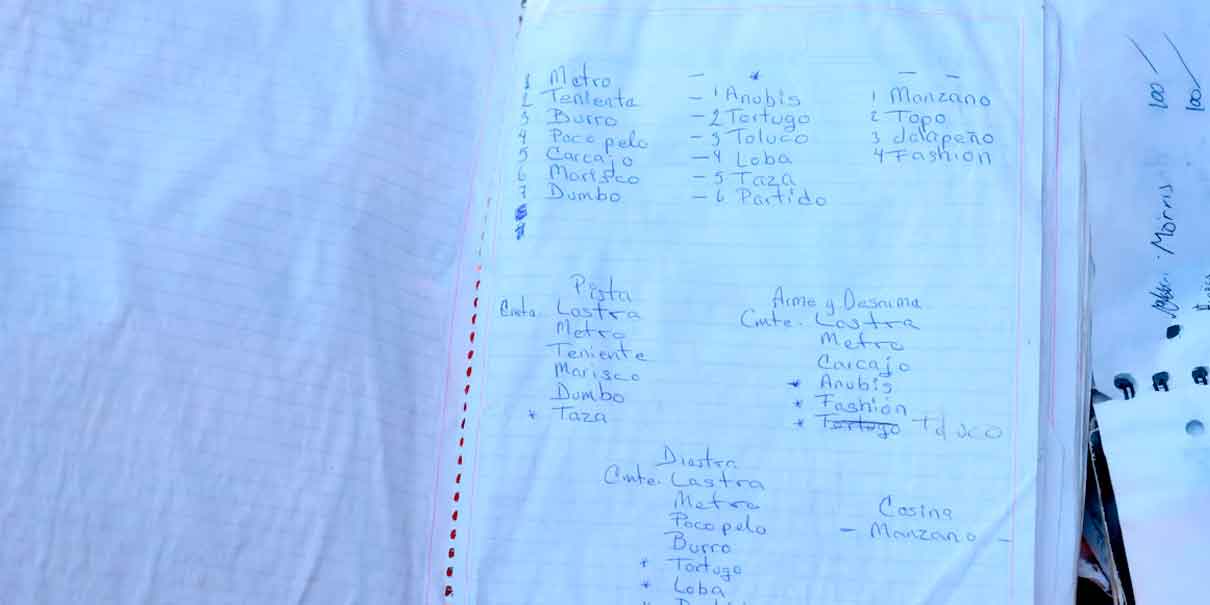 1 Metro
2 Tenienta
3 Burro
4 Poco pelo
5 Carcajo
6 Marisco
7 Dumbo
- *
- 1 Anubis
- 2 Tortugo
- 3 Toluco
- 4 Loba
- 5 Taza
- 6 Partido
- -
1 Manzano
2 Topo
3 Jalapeño
4 Fashion
Pista
Lastra
Metro
Teniente
Marisco
Dumbo
* Taza
Arme y Desarme
Cmte. Lastra
Metro
Carcajo
* Anubis
* Fashion
* Tortugo Toluco
Diestra
Cmte. Lastra
Metro
Poco pelo
Burro
* Tortugo
* Loba
Cosina
- Manzano -
100
100
Morris